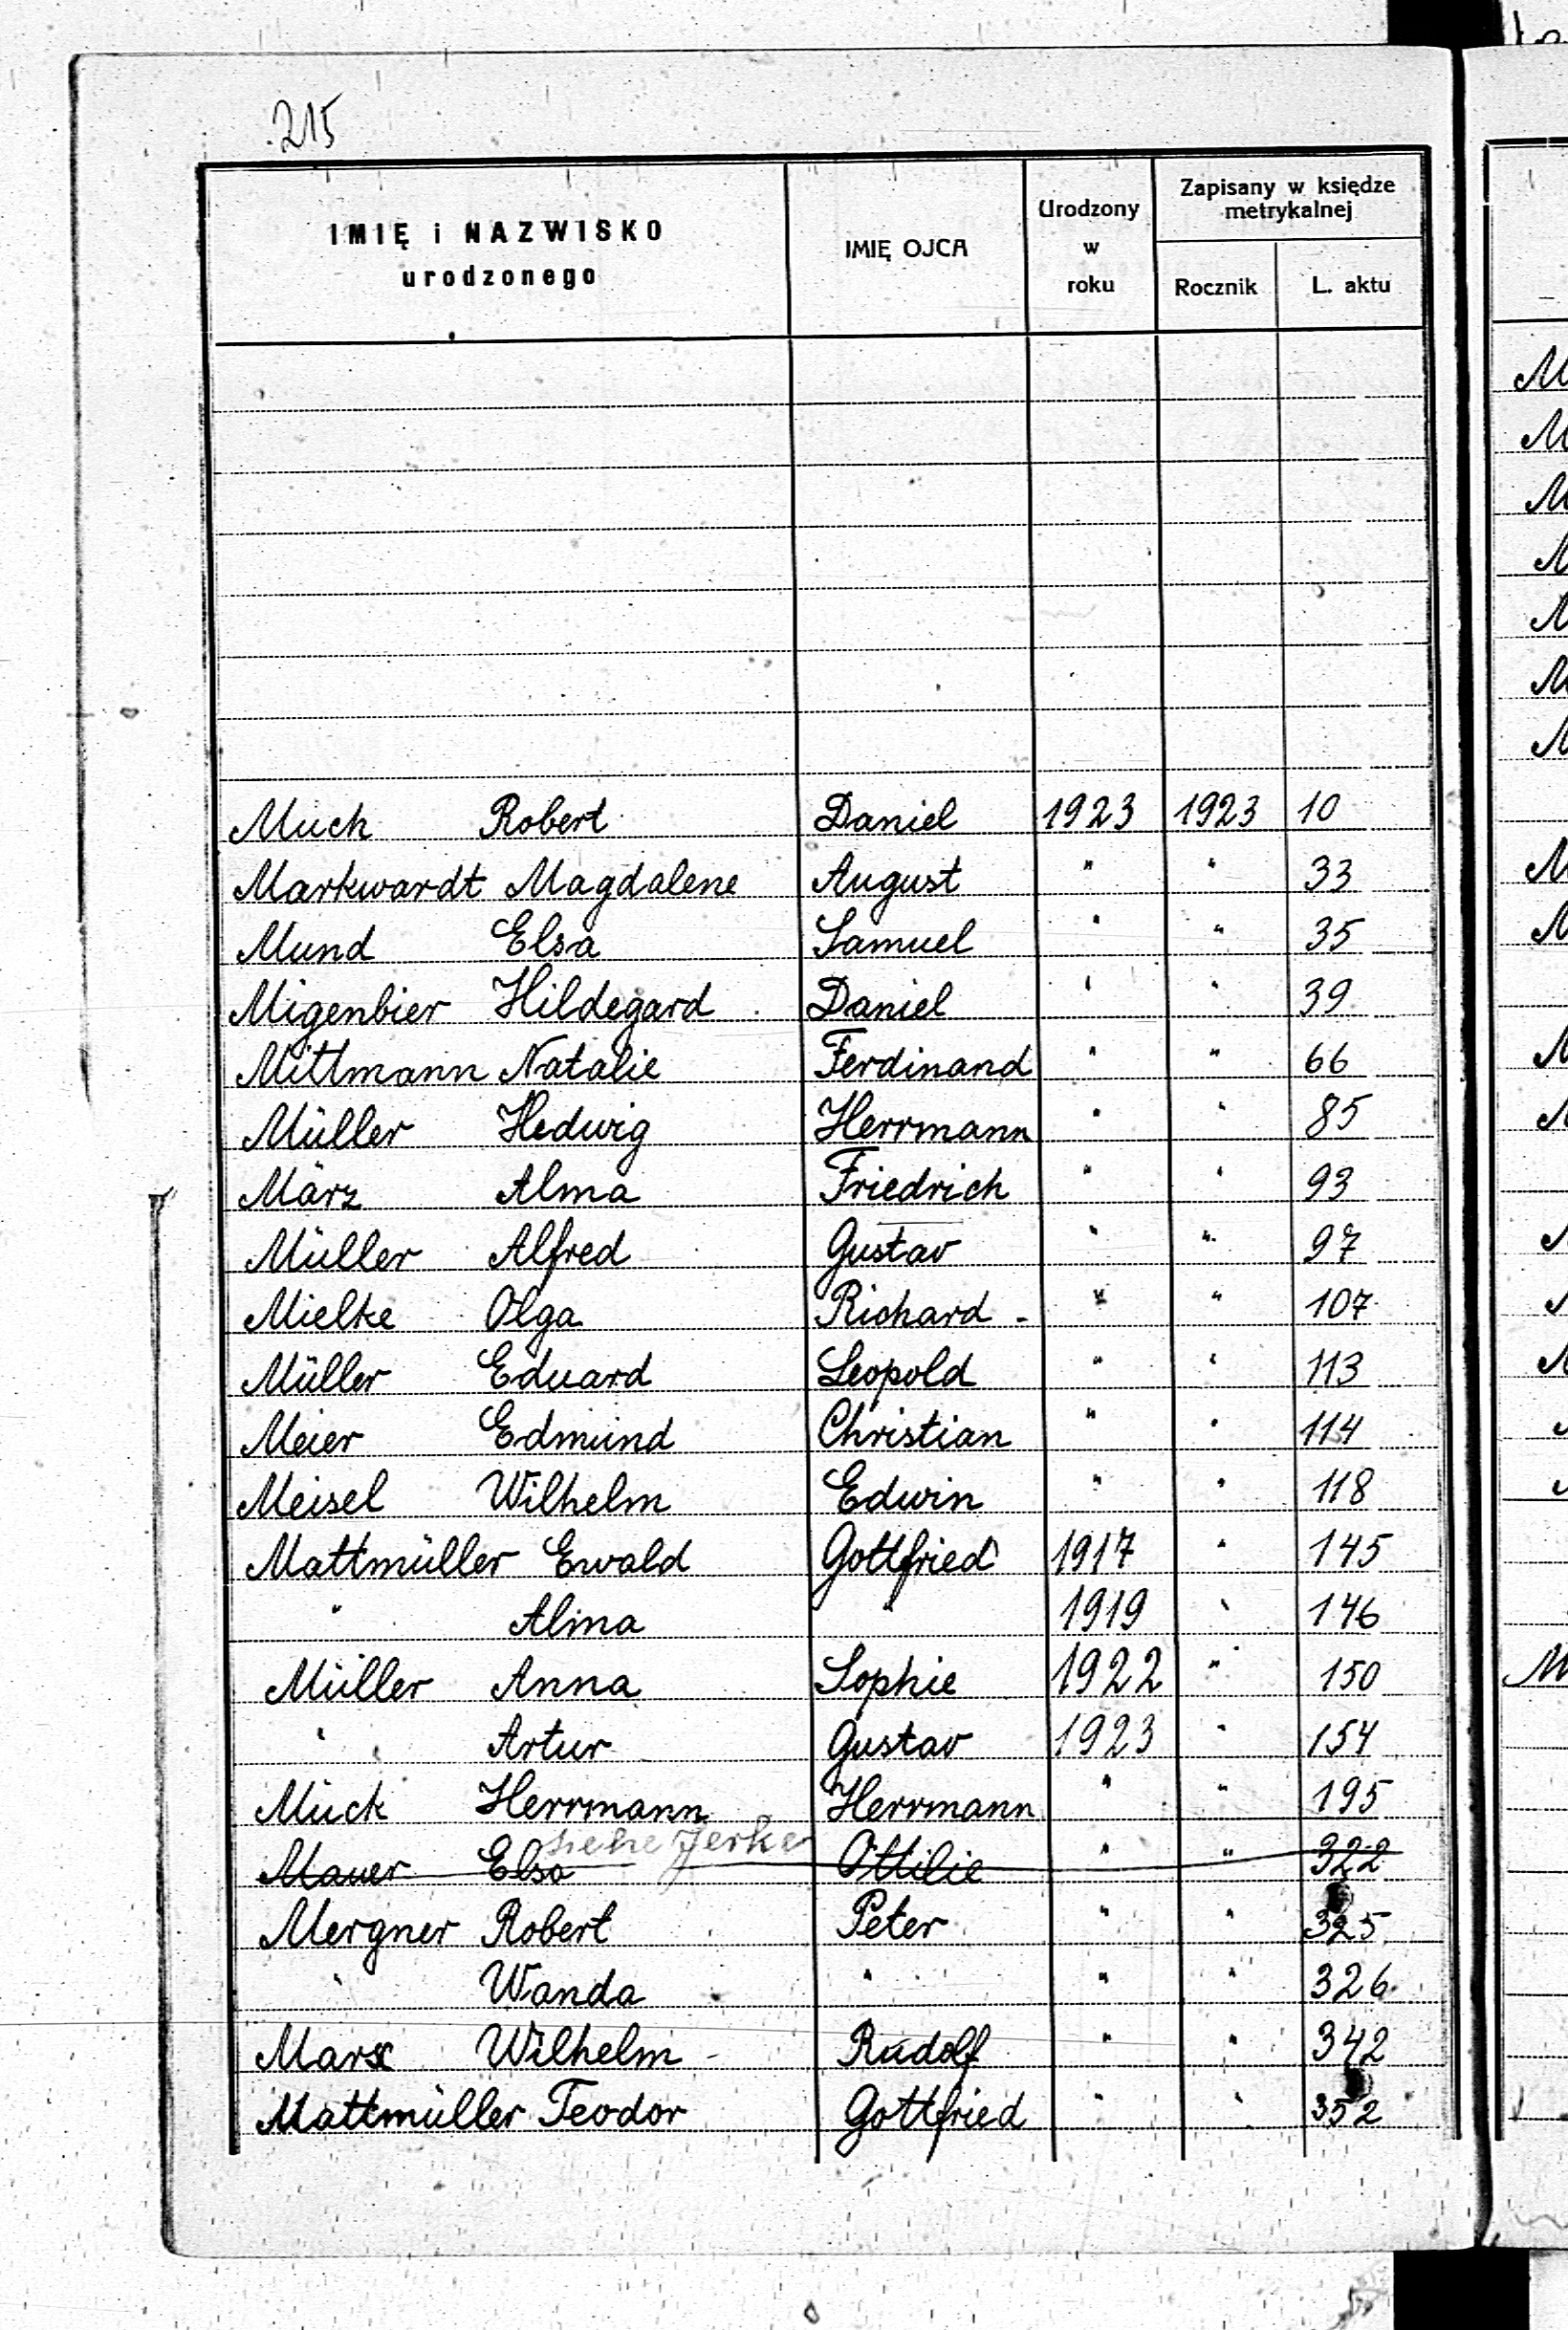 215
IMIĘ i NAZWISKO
urodzonego
IMIĘ OJCA
Urodzony
w
roku
Zapisany w księdze
metrykalnej
Rocznik
L. aktu
Much Robert Daniel 1923 1923 10
Markwardt Magdalene August " " 33
Mund Elsa Samuel " " 35
Migenbier Hildegard Daniel " " 39
Mittmann Natalie Ferdinand " " 66
Müller Hedwig Herrmann " " 85
März Alma Friedrich " " 93
Müller Alfred Gustav " " 97
Mielke Olga Richard " " 107
Müller Eduard Leopold " " 113
Meier Edmund Christian " " 114
Meisel Wilhelm Edwin " " 118
Mattmüller Ewald Gottfried 1917 " 145
" Alma " 1919 " 146
Müller Anna Sophie 1922 " 150
" Artur Gustav 1923 " 154
Mück Herrmann Herrmann " " 195
siehe Jerke
Mauer Elsa Ottilie " " 322
Mergner Robert Peter " " 325
" Wanda " " " 326
Marx Wilhelm Rudolf " " 342
Mattmüller Teodor Gottfried " " 352